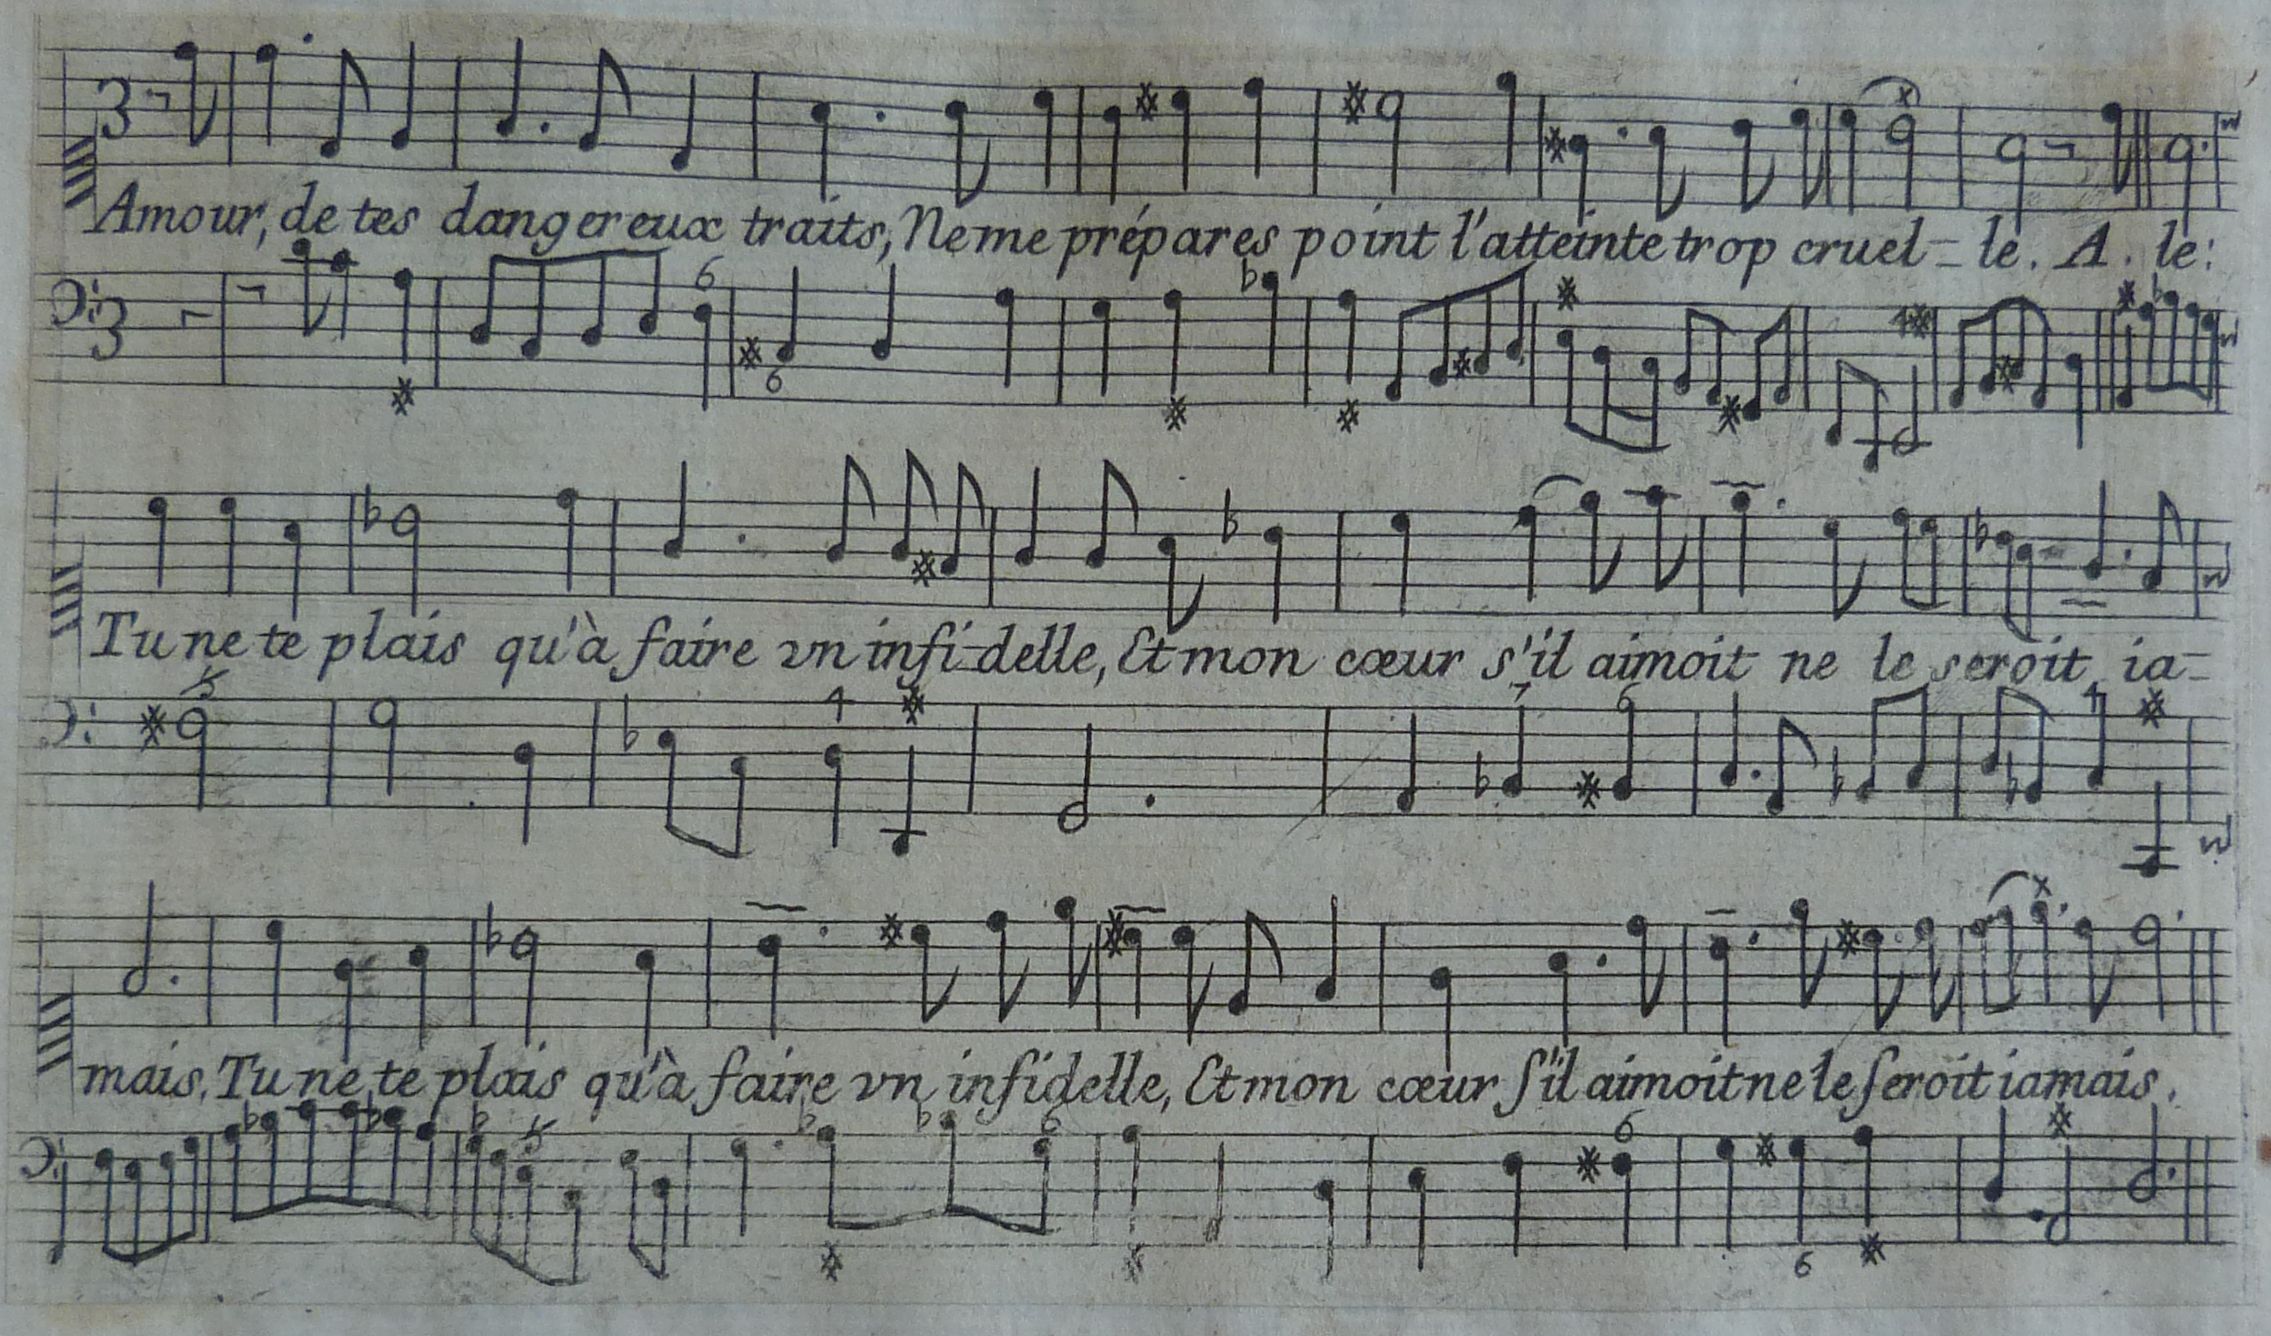 Amour, de tes dangereux traits, Ne me prépares point l'atteinte trop cruel-le. A. le:
Tu ne te plais qu'à faire vn infi-delle, Et mon cœur s'il aimoit ne le seroit ia-
mais, Tu ne te plais qu'à faire vn infidelle, Et mon cœur s'il aimoit ne le seroit iamais.